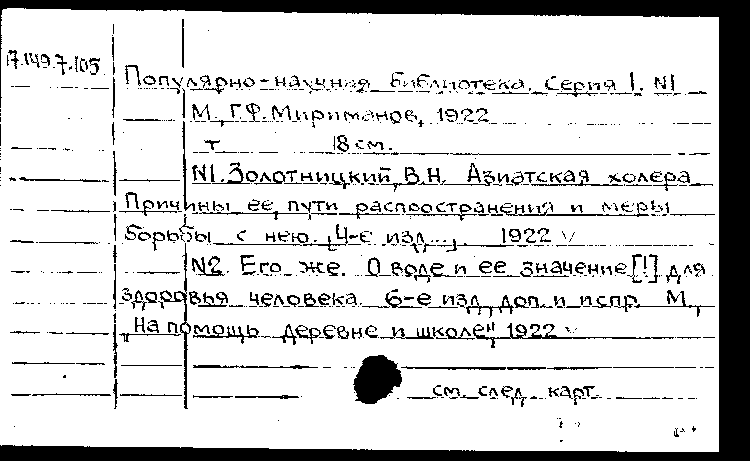 17.149.7-105
Популярно-научная библиотека. Серия 1. N1
М., Г.Ф. Мириманов, 1922
т 18 см.
N1. Золотницкий, В.Н. Азиатская холера
Причины ее, пути распространения и меры
борьбы с нею. [4-е изд...]. 1922 v
N2. Его же. О воде и ее значение [!] для
здоровья человека. 6-е изд., доп. и испр. М.,
"На помощь деревне и школе", 1922 v
см. след. карт.